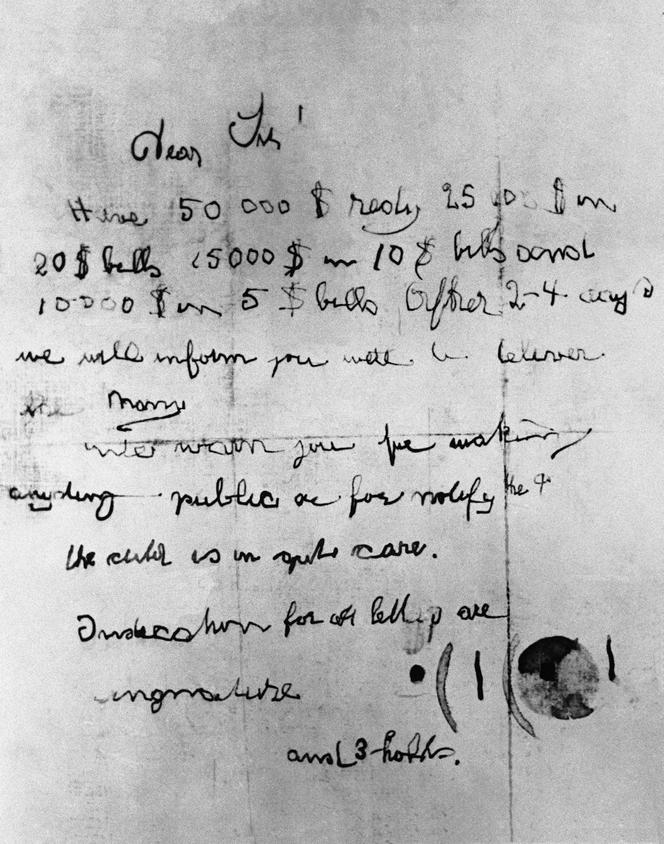 Dear Sir!
Have 50 000 $ redy 25 000 $ in
20 $ bills 15000 $ in 10 $ bills and
10000 $ in 5 $ bills After 2-4 days
we will inform you were to deliver
the Mony
we warn you for making
anyding public or for notify the
the child is in gute care.
Indication for all letters are
singnature
and 3 holds.